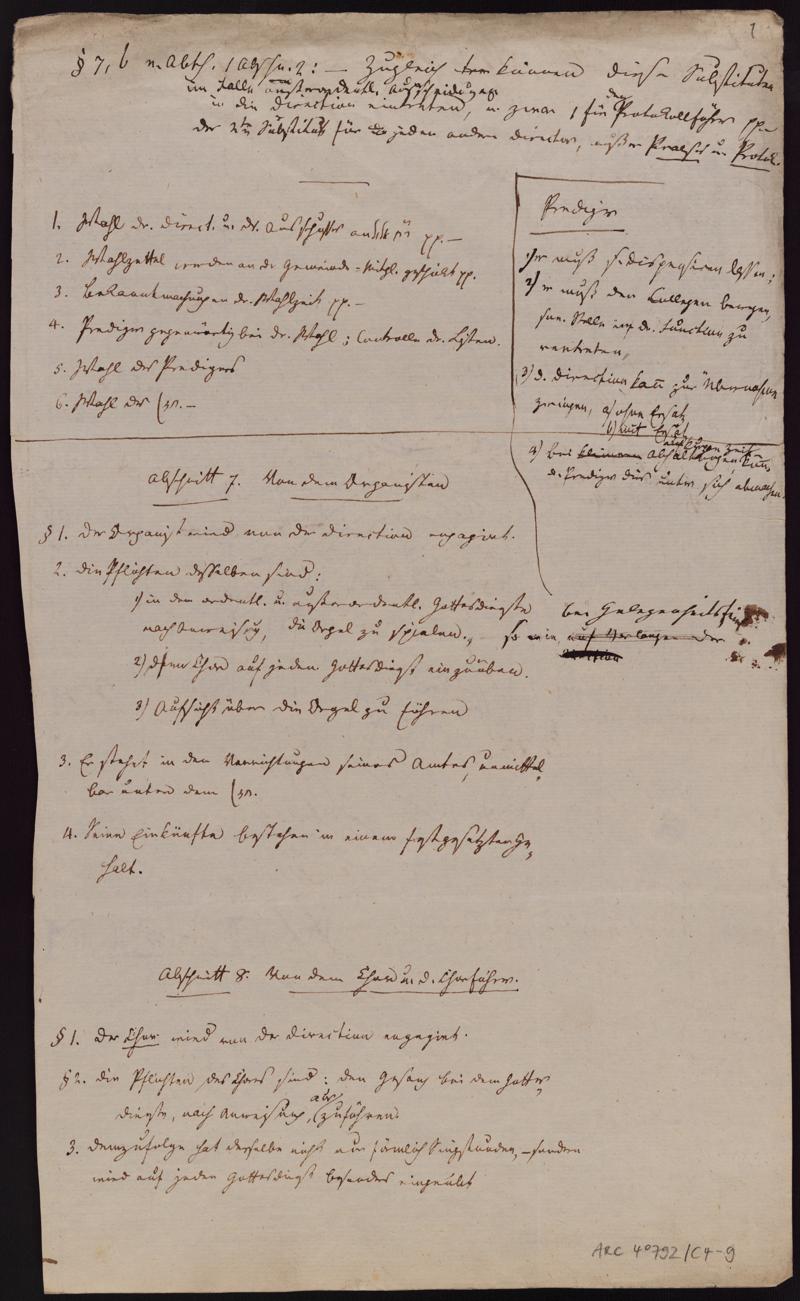 1
§ 7, b u. Abth. 1 Abschn. 2: — Zugleich können diese Substituten
im Falle außerordentl. Ausscheidungen
in die Direction eintreten, u. zwar 1 für den Protokollführer pp
der 2te Substitut für jeden andern Director, außer Präses u. Protok.
1. Wahl dr. Direct. u. dr. Ausschusses pp. —
2. Wahlzettel werden an die Gemeinde-Mitgl. geschickt pp.
3. Bekanntmachungen dr. Wahlzeit pp. —
4. Prediger gegenwärtig bei dr. Wahl; Controlle dr. Listen.
5. Wahl des Predigers
6. Wahl des
Prediger
1) er muß s. dispensiren lassen;
2) er muß den Collegen bewegen,
sne. Stelle in dr. Function zu
vertreten,
3) d. Direction kann zur Übernahme
zwingen, a) ohne Ersatz
b) mit Ersatz
4) bei kleineren Abhaltungen kann
d. Prediger dies unter sich abmachen
Abschnitt 7. Von dem Organisten
§ 1. Der Organist wird von der Direction engagirt.
2. Die Pflichten desselben sind:
1) in dem ordentl. u. außerordentl. Gottesdienste
nach Anweisung, die Orgel zu spielen, so wie auf Verlangen der
Direction
bei Gelegenheits
2) Den Chor auf jeden Gottesdienst einzuüben.
3) Aufsicht über die Orgel zu führen
3. Er steht in den Verrichtungen seines Amtes, unmittel-
bar unter dem
4. Seine Einkünfte bestehen in einem festgesetzten Ge-
halt.
Abschnitt 8. Von dem Chor u. d. Chorführer.
§ 1. Der Chor wird von der Direction engagirt.
§ 2. Die Pflichten des Chores sind: den Gesang bei dem Gottes-
dienste, nach Anweisung, zuführen.
3. Demzufolge hat derselbe nicht nur förmlich Singstunden, – sondern
wird auf jeden Gottesdienst besonders eingeübt
ARC 4°792/C4-9